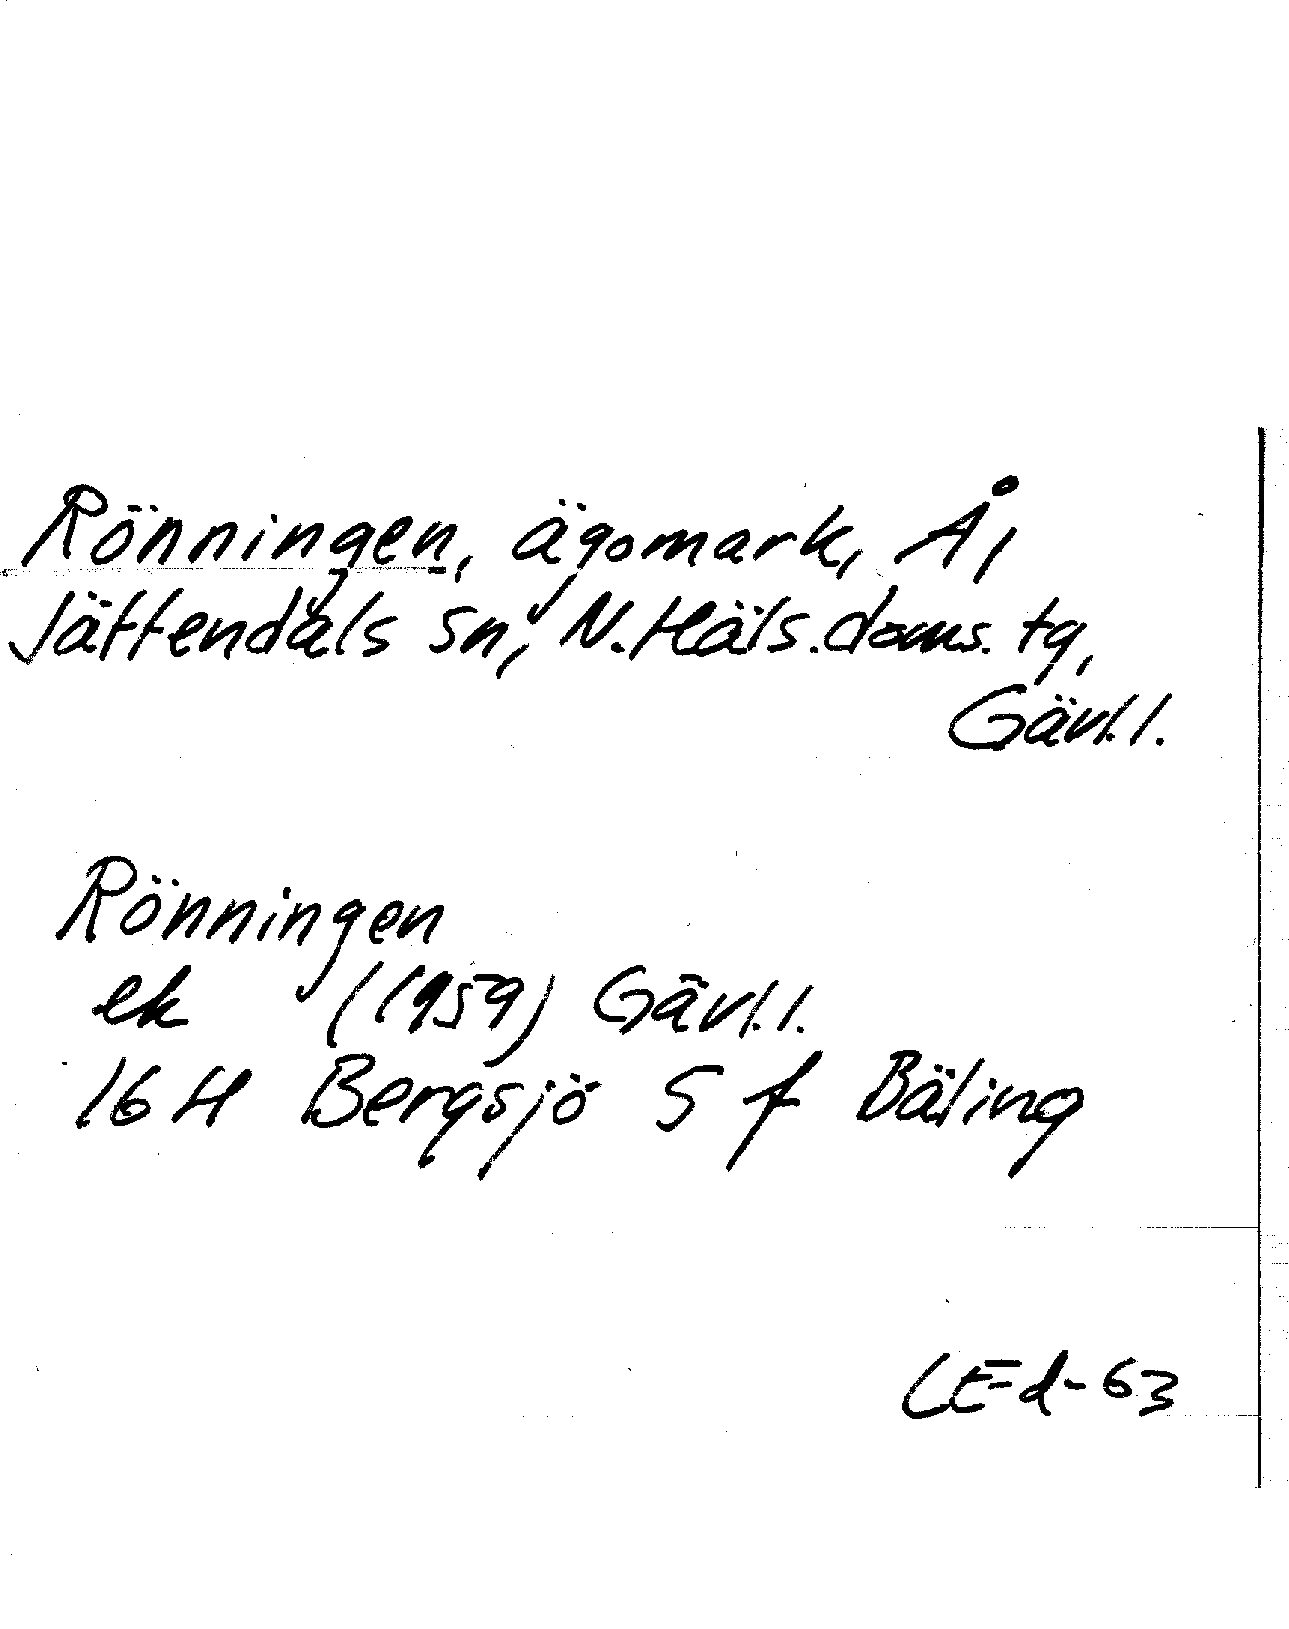 Rönningen, ägomark, Å,
Jättendals sn, N. Häls. doms. tg,
Gävl. l.
Rönningen
ek (1959) Gävl. l.
16 H Bergsjö S f Bäling
CEd-63